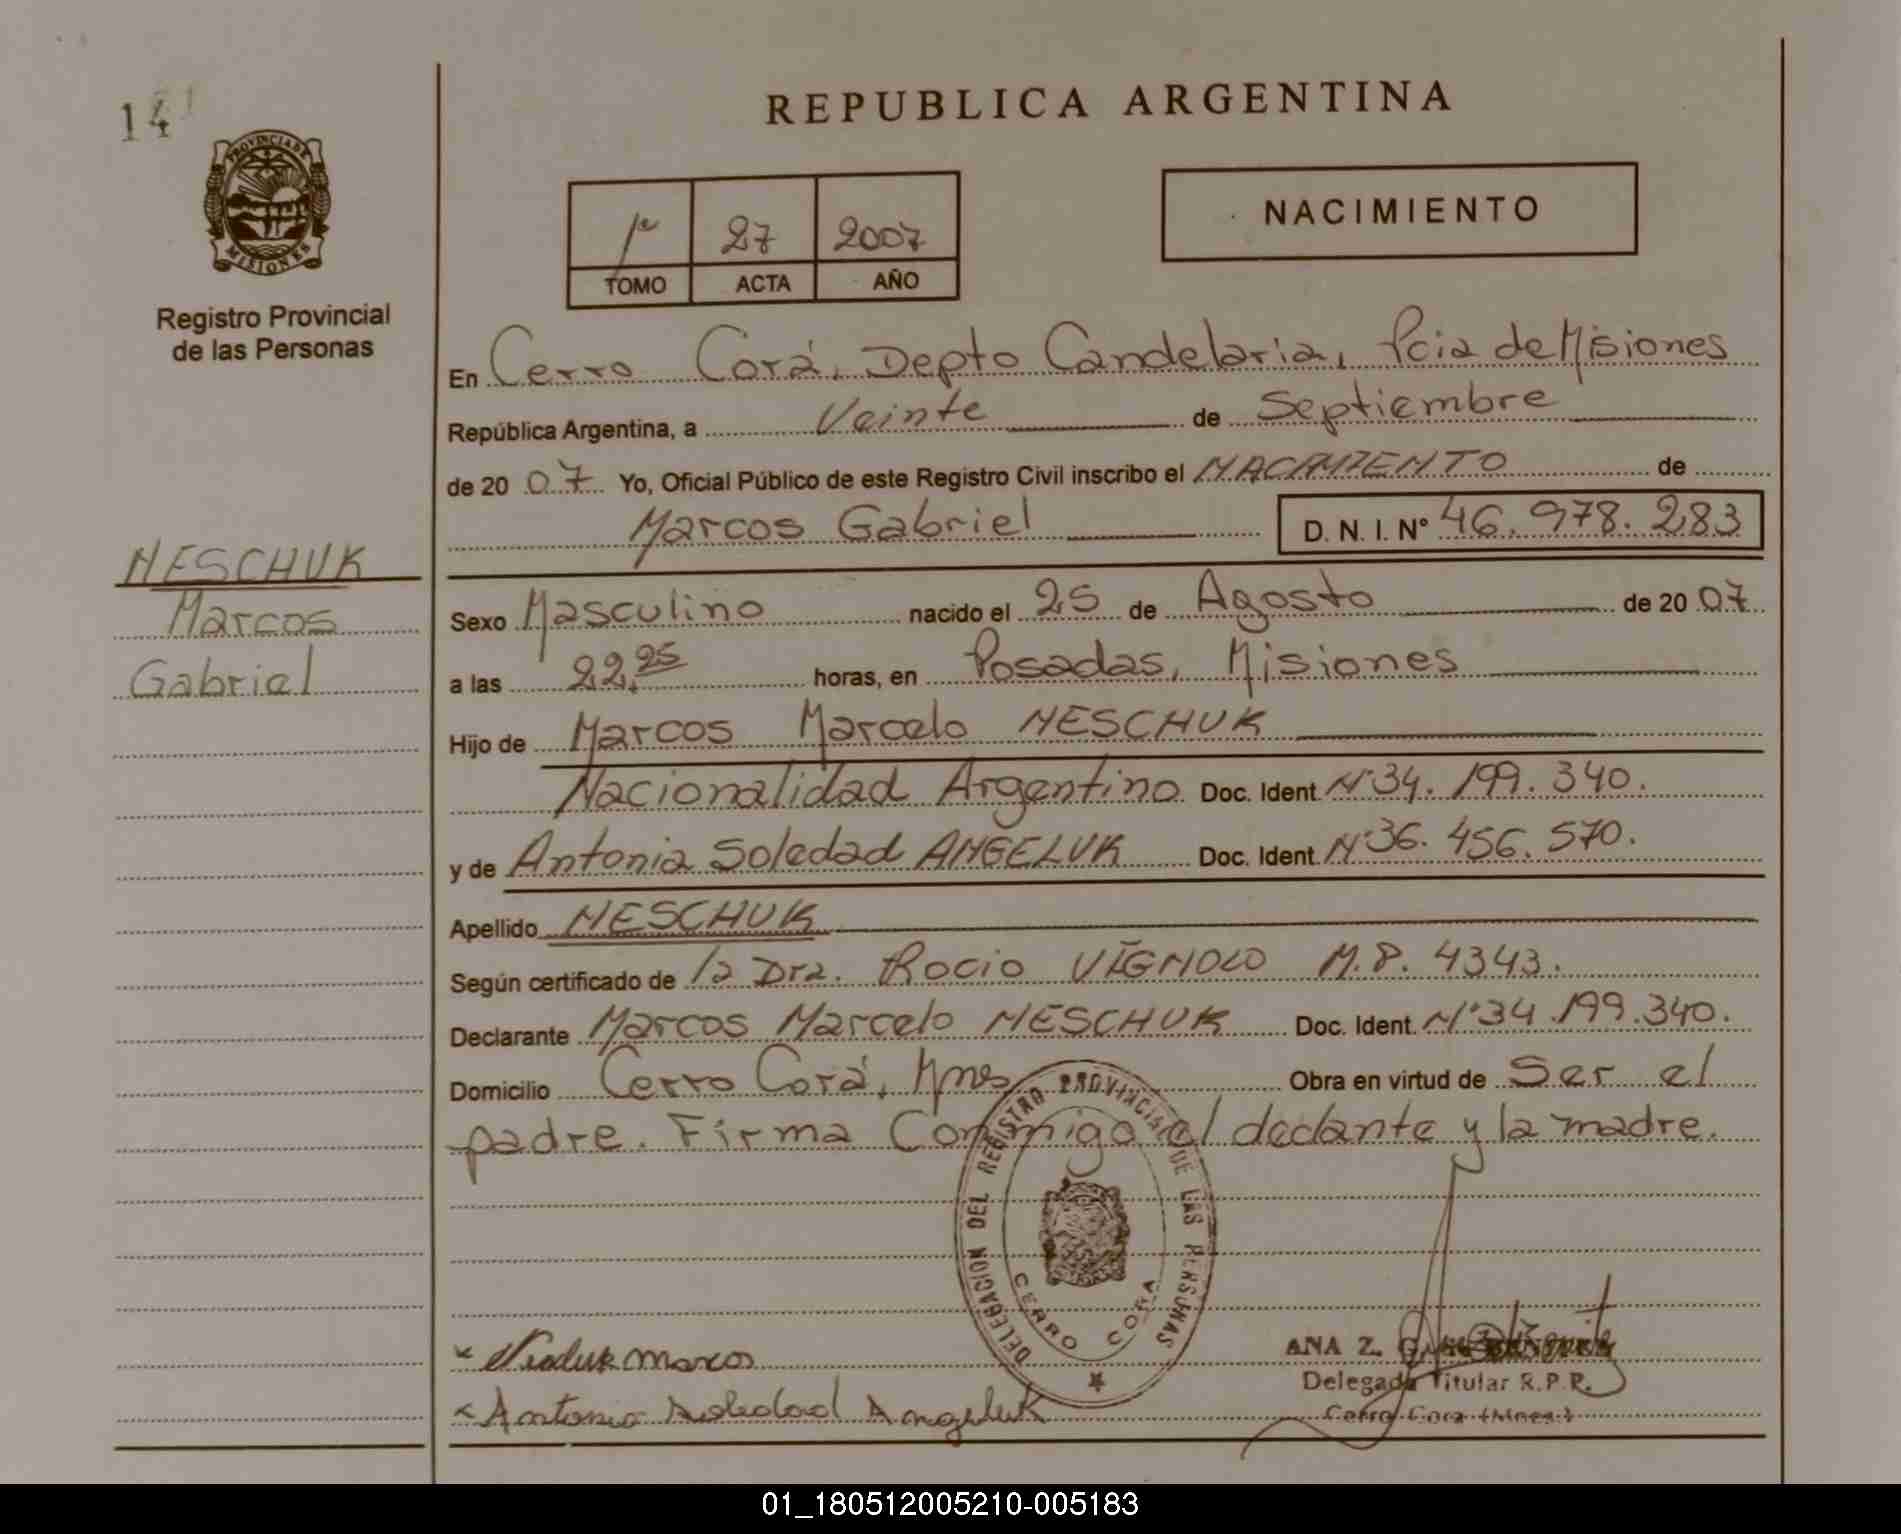 14
REPUBLICA ARGENTINA
PROVINCIA DE
MISIONES
Registro Provincial
de las Personas
1º 27 2007
TOMO ACTA AÑO
NACIMIENTO
En Cerro Corá, Depto Candelaria, Pcia de Misiones
República Argentina, a Veinte de Septiembre
de 20 07 Yo, Oficial Público de este Registro Civil inscribo el NACIMIENTO de
Marcos Gabriel D. N. I. Nº 46.978.283
NESCHUK
Marcos
Gabriel
Sexo Masculino nacido el 25 de Agosto de 20 07
a las 22.25 horas, en Posadas, Misiones
Hijo de Marcos Marcelo NESCHUK
Nacionalidad Argentino Doc. Ident. Nº 34.199.340.
y de Antonia Soledad ANGELUK Doc. Ident. Nº 36.456.570.
Apellido NESCHUK
Según certificado de la Dra. Rocio VIGNOLO M.P. 4343.
Declarante Marcos Marcelo NESCHUK Doc. Ident. Nº 34.199.340.
Domicilio Cerro Corá, Mnes Obra en virtud de Ser el
padre. Firma Conmigo el declante y la madre.
DELEGACION DEL REGISTRO PROVINCIAL DE LAS PERSONAS
CERRO CORA
Marcos
Antonia Soledad Angeluk
ANA Z.
Delegada Titular R.P.P.
Cerro Cora (Mnes.)
01_180512005210-005183